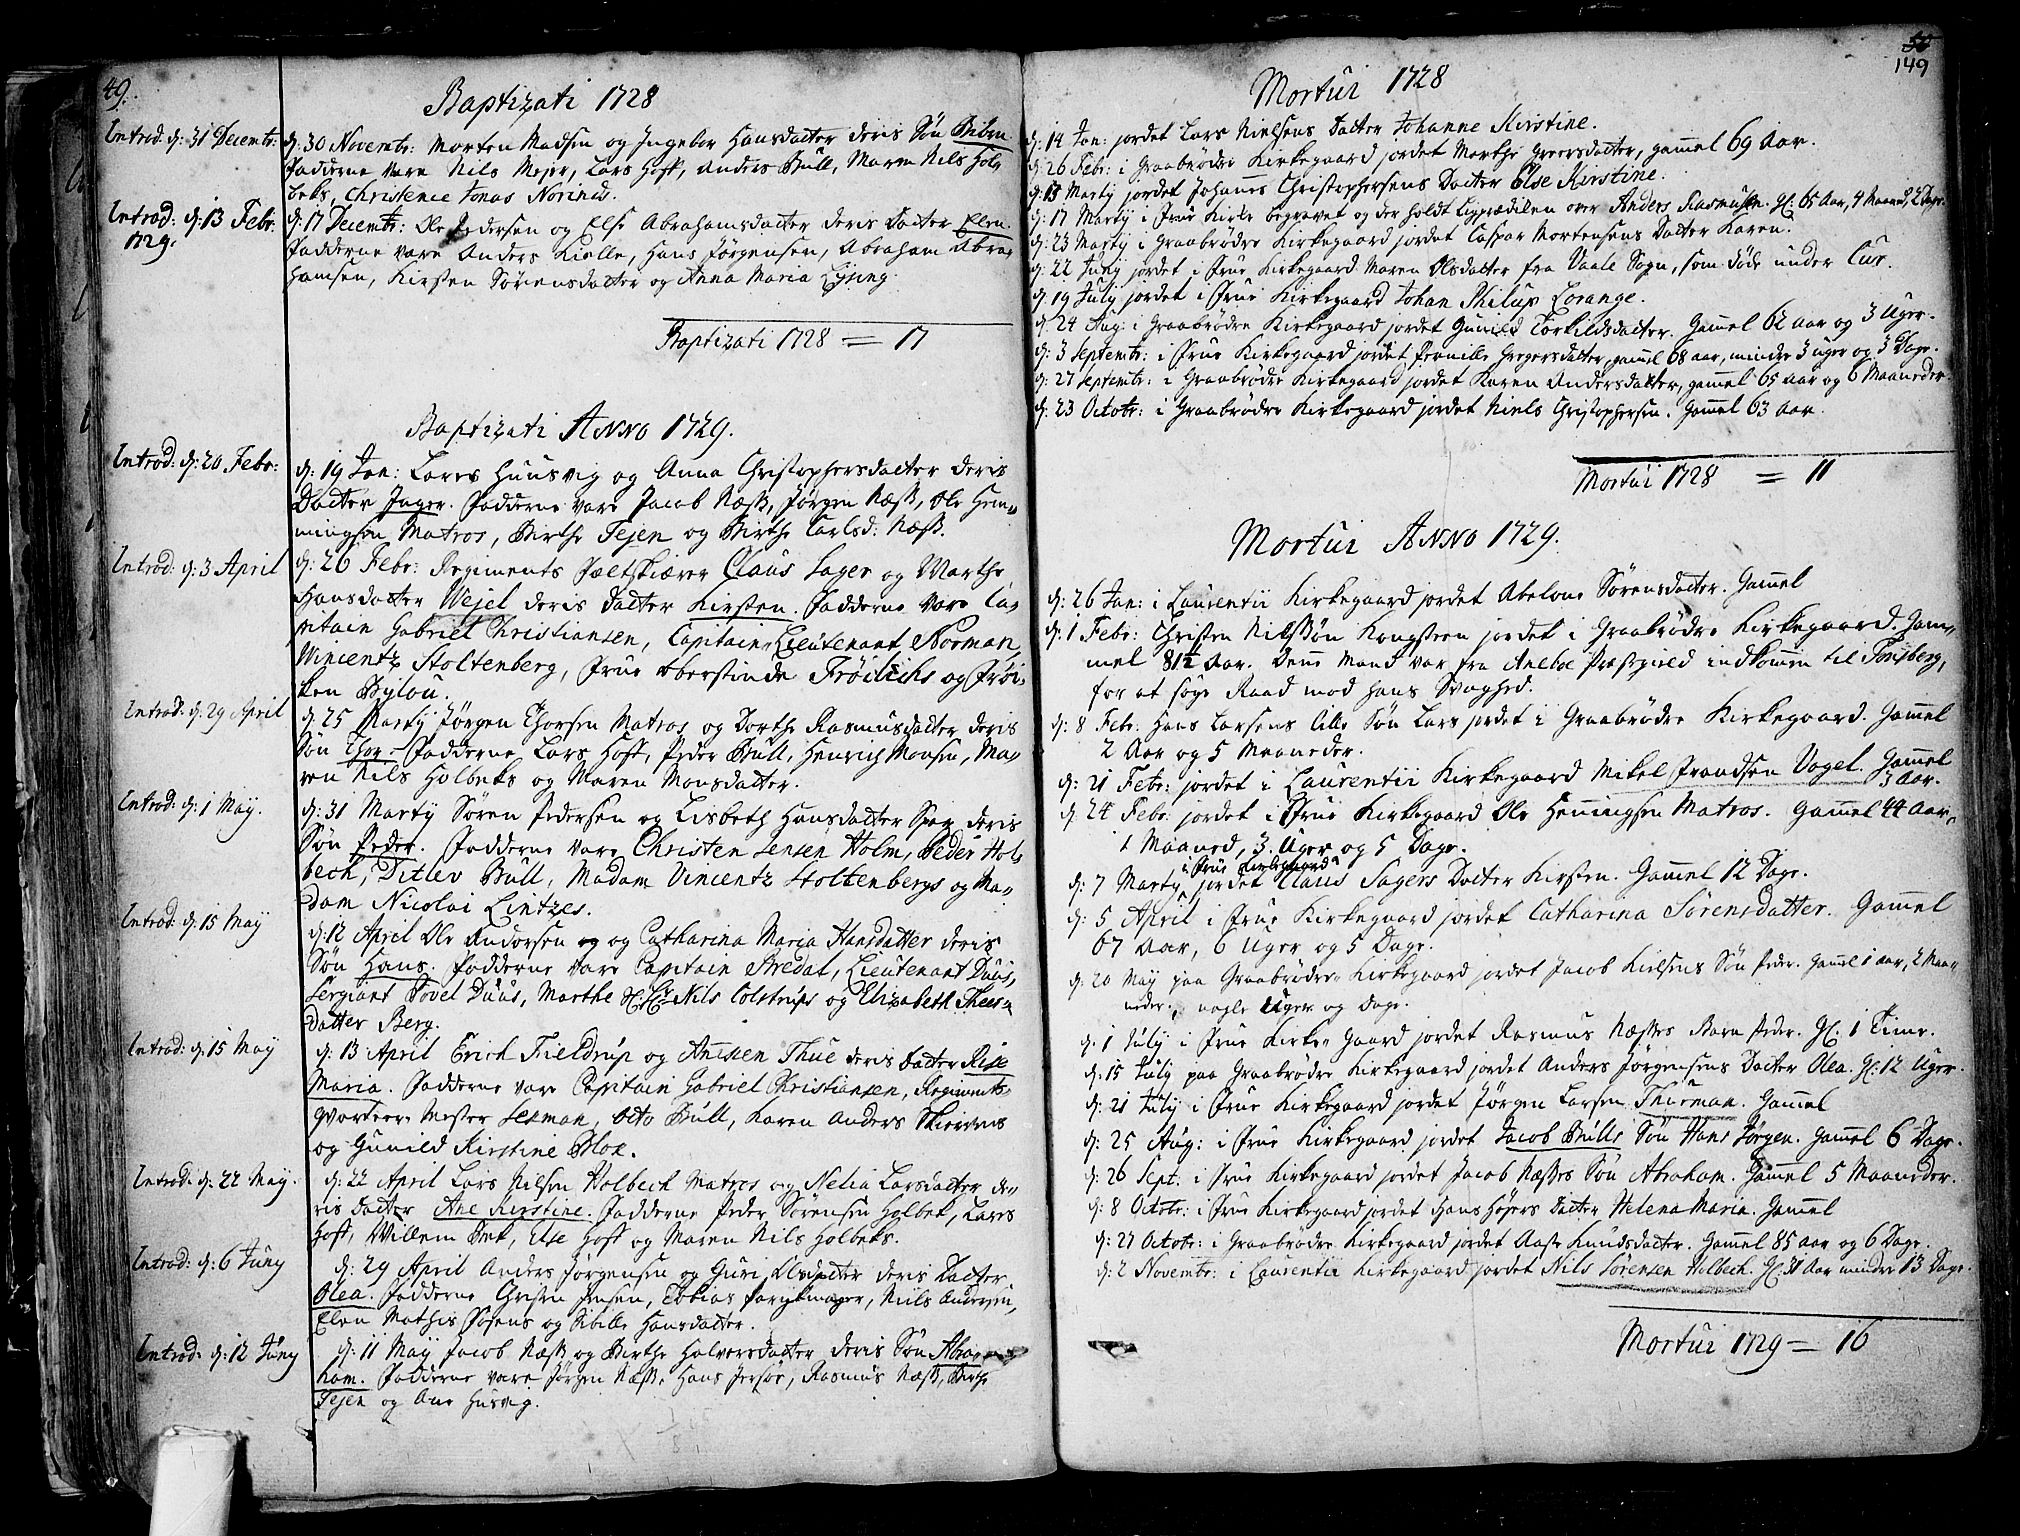 49.
Baptizati 1728
Introd: d: 31 Decembr:
d: 30 Novembr: Morten Madsen og Ingebor Hansdatter deris Søn
Fadderne vare Nils Mejer, Lars Hoft, Anders Bull, Maren Nils Hol-
beks, Christence Jonas
Introd: d: 13 Febr:
1729.
d: 17 Decembr: Ole Pedersen og Else Abrahamsdatter deris Datter Elen.
Fadderne vare Anders Kielle, Hans Jørgensen, Abraham Abra-
hamsen, Kirsten Sørensdatter og Anna Maria
Baptizati 1728 = 17
Baptizati Anno 1729.
Introd: d: 20 Febr:
d: 19 Jan: Lars Huusvig og Anna Christophersdatter deris
Datter Inger. Fadderne vare Jacob Næss, Jørgen Næss, Ole Hen-
ningsen Matros, Birthe Tejen og Birthe Carlsd: Næss.
Introd: d: 3 April
d: 26 Febr: Regiments Feltskiærer Claus Sager og Marthe
Hansdatter Wejel deris datter Kirsten. Fadderne vare Ca-
pitain Gabriel Christiansen, Capitain Lieutenant Norman,
Vincentz Stoltenberg, Frue Oberstinde Frøilichs og Frøi-
ken Bylou.
Introd: d: 29 April
d: 25 Marty Jørgen Thorsen Matros og Dorthe Rasmusdatter deris
Søn Thor. Fadderne Lars Hoft, Peder Bull, Henrich Monsen, Ma-
ren Nils Holbeks og Maren Monsdatter.
Introd: d: 1 May.
d: 31 Marty Søren Pedersen og Lisbeth Hansdatter deris
Søn Peder. Fadderne vare Christen Jensen Holm, Peder Hol-
bech, Ditlev Bull, Madam Vincentz Stoltenbergs og Ma-
dam Nicolai Lintzes.
Introd: d: 15 May
d: 12 April Ole Andersen og og Catharina Maria Hansdatter deris
Søn Hans. Fadderne vare Capitain Bredal, Lieutenant Duus,
Sergiant Povel Duus, Marthe Nils Colstrups og Elizabeth Thers-
datter Berg.
Introd: d: 15 May
d: 13 April Erich Fieldrup og Aniken Thue deris Datter Rise
Maria. Fadderne vare Capitain Gabriel Christiansen, Regiments
qvarteer Mester Leeman, Otto Bull, Karen Anders
og Gunild Kirstine Blok.
Introd: d: 22 May.
d: 22 April Lars Nilsen Holbech Matros og Nelia Larsdatter de-
ris datter Ane Kirstine. Fadderne Peder Sørensen Holbek, Lars
Hoft, Willem Bek, Else Hoft og Maren Nils Holbeks.
Introd: d: 6 Juny
d: 29 April Anders Jørgensen og Guri Olsdatter deris Datter
Olea. Fadderne Christen Jensen, Tobias, Niels Andersen,
Elen Mathis og Sibille Hansdatter.
Introd: d: 12 Juny
d: 11 May Jacob Næss og Birthe Halversdatter deris Søn Abra-
ham. Fadderne vare Jørgen Næss, Hans Jersøe, Rasmus Næss, Birthe
Tejen og Ane Husvig.
50
149
Mortui 1728
d: 14 Jan: jordet Lars Nielsens Datter Johanne Kirstine.
d: 26 Febr: i Graabrødre Kirkegaard jordet Marthe Greersdatter, gammel 69 Aar.
d: 13 Marty jordet Johannes Christophersens Datter Else Kirstine.
d: 17 Marty i Frue Kirke begravet og der holdt Ligprædiken over Anders Rasmusen. Gl: 65 Aar, 4 Maaned, 2 Dage.
d: 23 Marty i Graabrødre Kirkegaard jordet Caspar Mortensens Datter Karen.
d: 22 Juny jordet i Frue Kirkegaard Maren Olsdatter fra Vaale Sogn, som døde under Cur.
d: 19 July jordet i Frue Kirkegaard Johan Philup Lorange.
d: 24 Aug: i Graabrødre Kirkegaard jordet Gunild Torkildsdatter. Gammel 62 aar og 3 Uger.
d: 3 Septembr: i Frue Kirkegaard jordet Pernille Gregersdatter, gammel 68 aar, mindre 3 uger og 3 Dage.
d: 27 Septembr: i Graabrødre Kirkegaard jordet Karen Andersdatter, gammel 65 aar og 6 Maaneder.
d: 23 Octobr: i Graabrødre Kirkegaard jordet Niels Christophersen. Gammel 63 Aar.
Mortui 1728 = 11
Mortui Anno 1729.
d: 26 Jan: i Laurentii Kirkegaard jordet Abelone Sørensdatter. Gammel
d: 1 Febr: Christen Nilssøn Kongsteen jordet i Graabrødre Kirkegaard. Gam-
mel 81½ Aar. Denne Mand var fra Aneboe Præstegield indkommen til Tønsberg,
for at søge Raad mod hans Svaghed.
d: 8 Febr: Hans Larsens lille Søn Lars jordet i Graabrødre Kirkegaard. Gammel
2 Aar og 5 Maaneder.
d: 21 Febr: jordet i Laurentii Kirkegaard Mikel Frandsen Vogel. Gammel
3 Aar.
d: 24 Febr: jordet i Frue Kirkegaard Ole Henningsen Matros. Gammel 44 Aar,
1 Maaned, 3 Uger og 5 Dage.
i Frue Kirkegaard
d: 7 Marty jordet Claus Sagers Datter Kirsten. Gammel 12 Dage.
d: 5 April i Frue Kirkegaard jordet Catharina Sørensdatter. Gammel
67 Aar, 6 Uger og 5 Dage.
d: 20 May paa Graabrødre Kirkegaard jordet Jacob Nielsens Søn Peder. Gammel 1 aar, 2 Maa-
neder, nogle Uger og Dage.
d: 1 July i Frue Kirke-Gaard jordet Rasmus Næsses Barn Peder. Gl: 1 Time.
d: 15 July paa Graabrødre Kirkegaard jordet Anders Jørgensens Datter Olea. Gl: 12 Uger.
d: 21 July i Frue Kirkegaard jordet Jørgen Larsen Thurman. Gammel
d: 25 Aug: i Frue Kirkegaard jordet Jacob Bulls Søn Hans Jørgen. Gammel 6 Dage.
d: 26 Sept. i Frue Kirkegaard jordet Jacob Næsses Søn Abraham. Gammel 5 Maaneder.
d: 8 Octobr: i Frue Kirkegaard jordet Hans Høyers Datter Helena Maria. Gammel
d: 27 Octobr: i Graabrødre Kirkegaard jordet Aase Knudsdatter. Gammel 85 aar og 6 Dage.
d: 2 Novembr: i Laurentii Kirkegaard jordet Nils Sørensen Holbech. Gl: 31 Aar mindre 13 Dage.
Mortui 1729 = 16